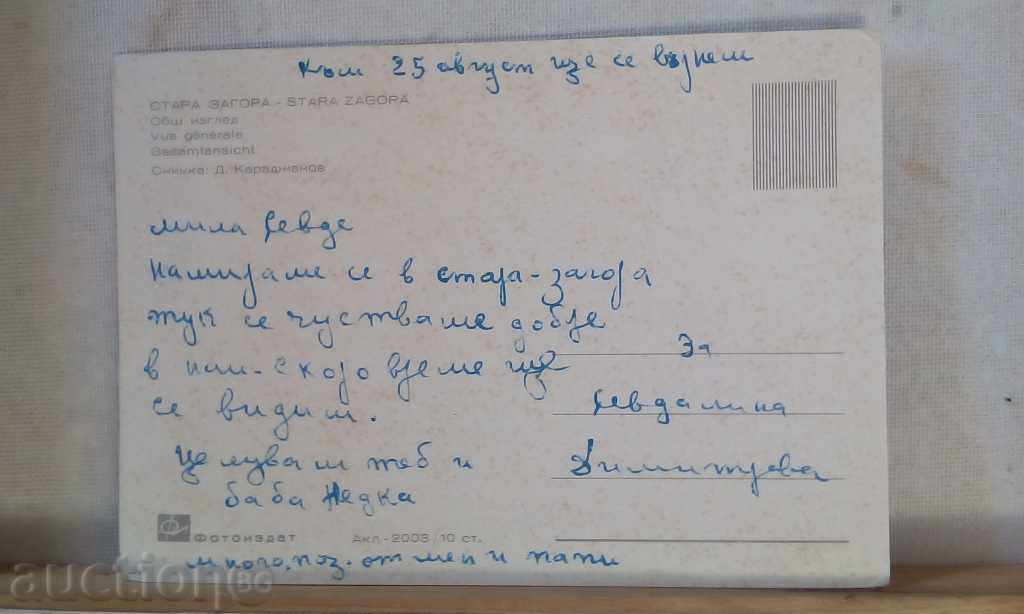 към 25 август ще се върнем
СТАРА ЗАГОРА - STARA ZAGORA
Общ изглед
Vue générale
Gesamtansicht
Снимка: Д. Караджанов
мила Севде
намираме се в стара-загора
тук се чустваме добре
в най-скоро време ще
се видим.
Целувам теб и
баба Недка
За
Севдалина
Димитрова
Фотоиздат Акл-2003/10 ст.
много поз. от мен и тати
auction.bg